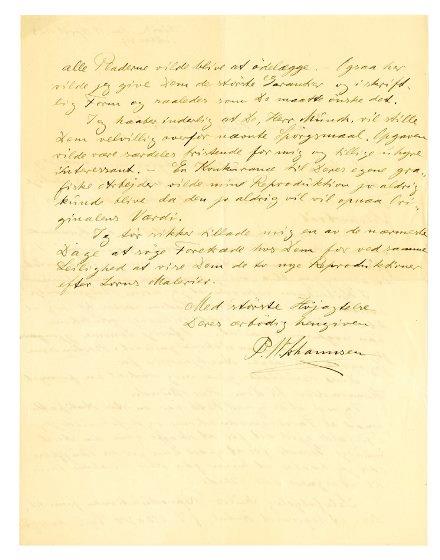 alle Pladerne vilde blive at ödelægge. – Ogsaa her
vilde jeg give Dem de störste Garantier og i skrift-
lig Form og saaledes som De maatte önske det.
Jeg haaber inderlig at De, Herr Münch, vil stille
Dem velvillig overfor nævnte Spörgsmaal. Opgaven
vilde være særdeles fristende for mig og tillige uhyre
interessant. – En Konkurance til Deres egne gra-
fiske Arbejder vilde mine Reproduktion jo aldrig
kunde blive da den jo aldrig vil opnaa Ori-
ginalens Værdi.
Jeg tör sikker tillade mig en av de nærmeste
Dage at söge Foretræde hos Dem for ved samme
Leilighed at vise Dem de to nye Reproduktioner
efter Zorns Malerier.
Med störste Höjagtelse
Deres ærbödig hengiven
P. W. Johannsen